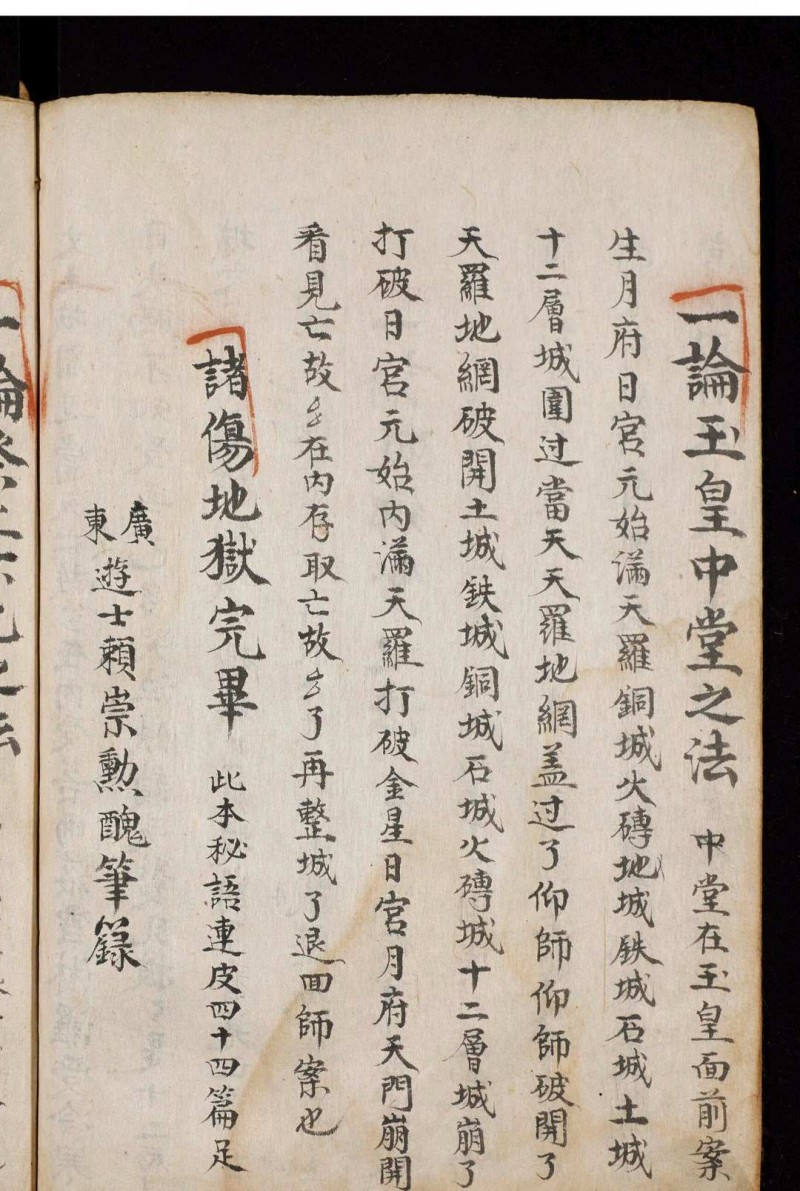 一論玉皇中堂之法 中堂在玉皇面前案
生月府日宮元始滿天羅銅城火磚地城鉄城石城土城
十二層城圍过當天天羅地網盖过了仰師仰師破開了
天羅地網破開土城鉄城銅城石城火磚城十二層城崩了
打破日宮元始內滿天羅打破金星日宮月府天門崩開
看見亡故在內存取亡故了再整城了退回師案也
諸傷地獄完畢 此本秘語連皮四十四篇足
廣東遊士賴崇勲醜筆録
一論